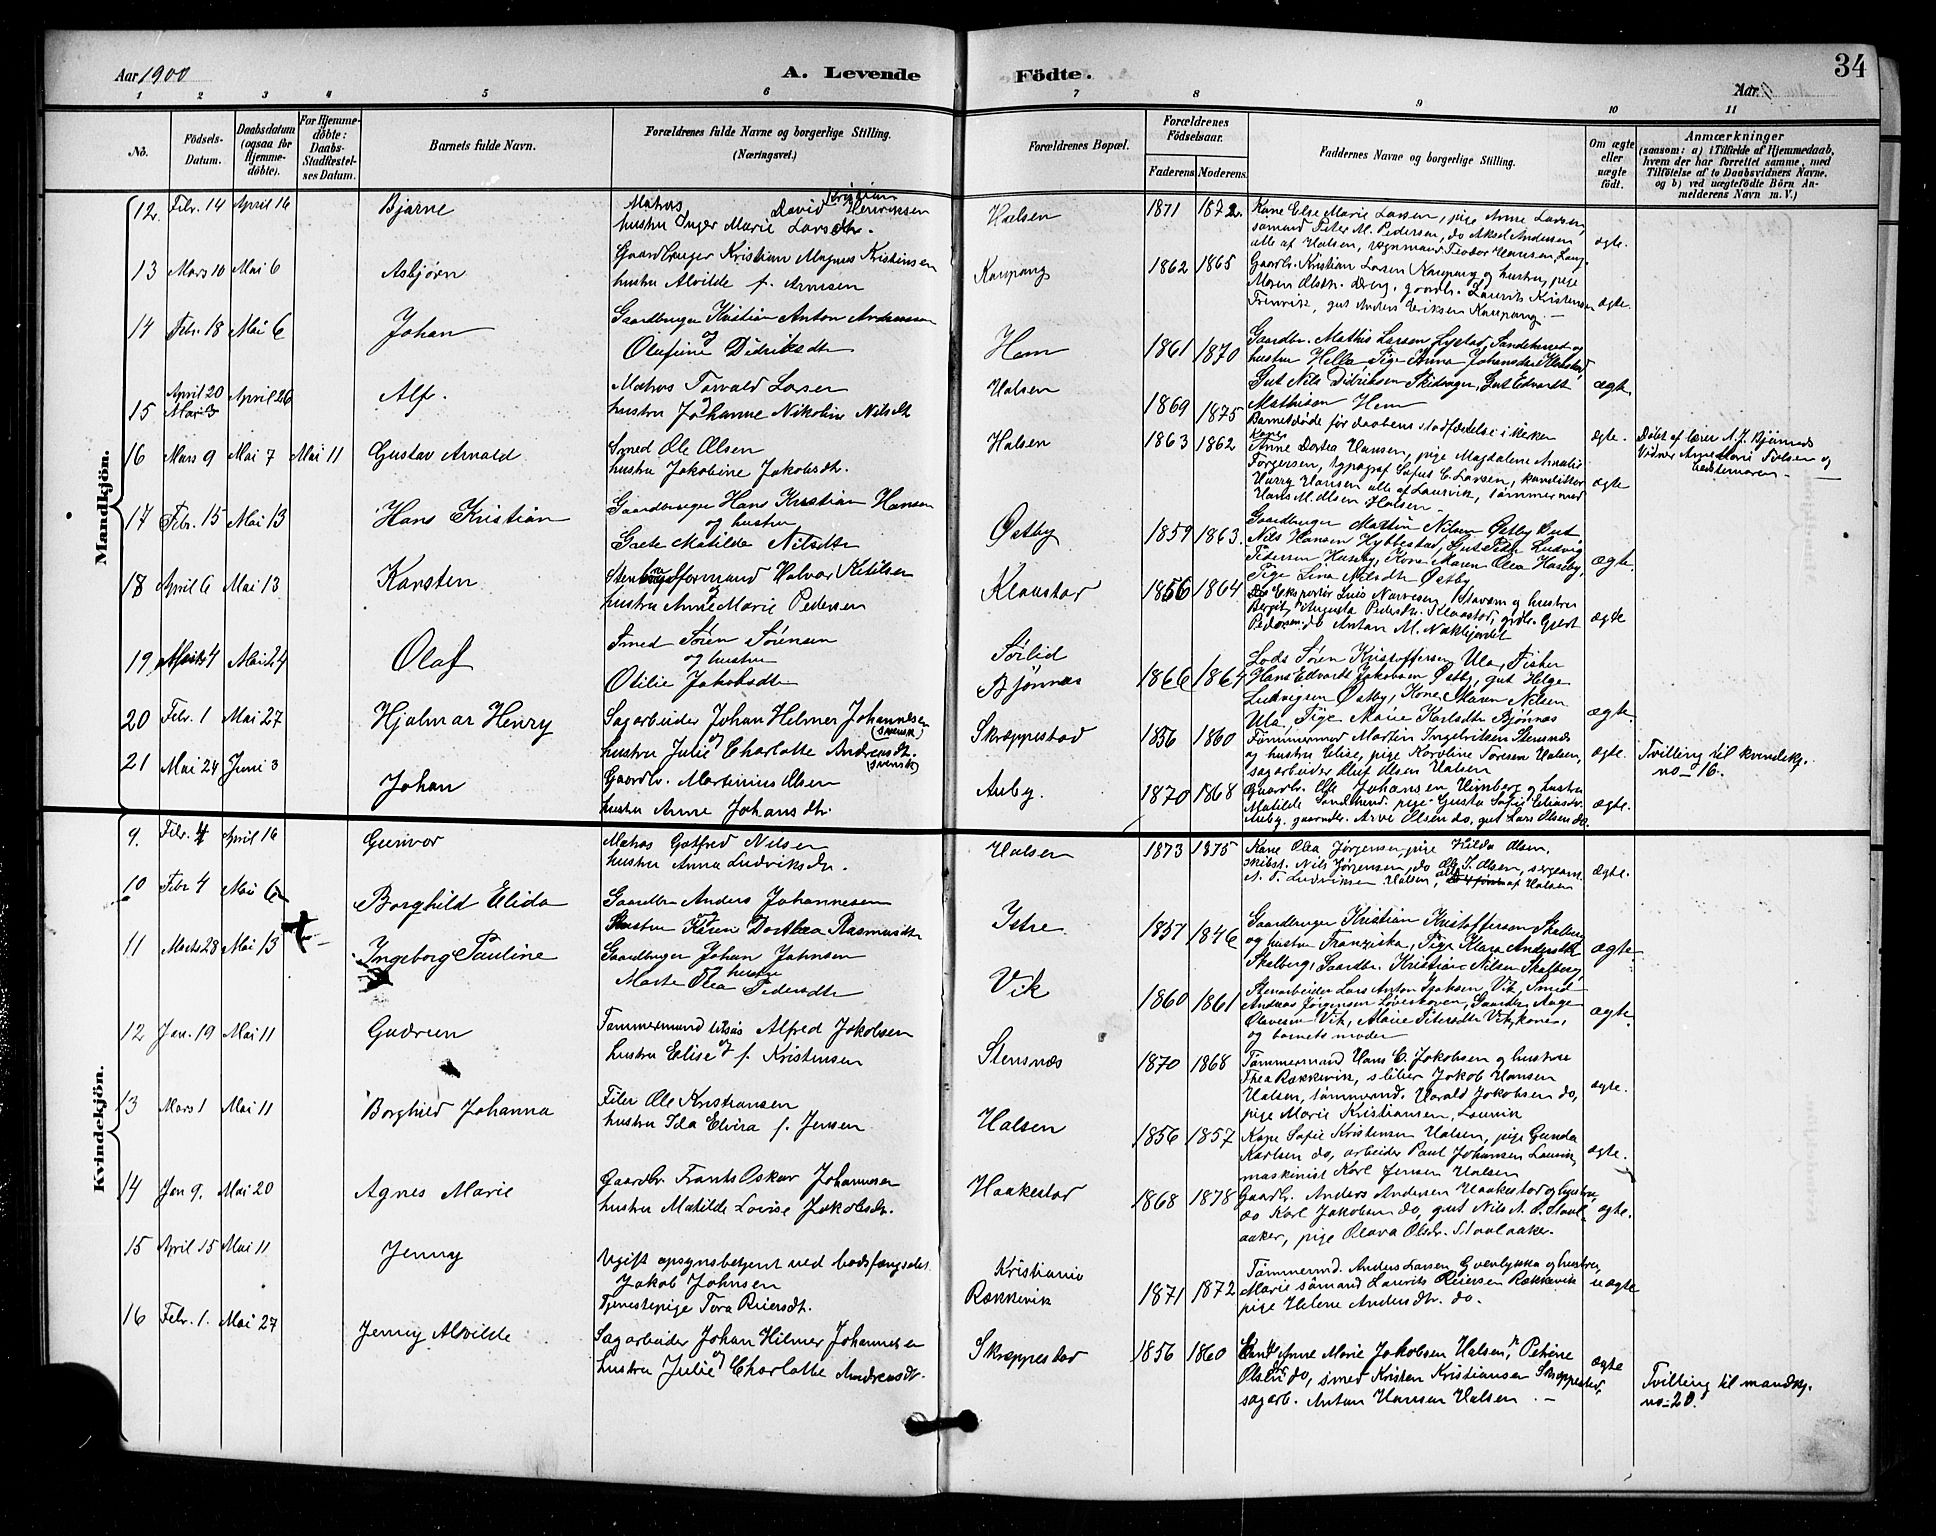 Aar 1900
A. Levende
Födte.
34
Aar
1 2 3 4 5 6 7 8 9 10 11
No.
Födsels-Datum.
Daabsdatum (ogsaa for Hjemme-døbte).
For Hjemme-døbte: Daabs-Stadfæstel-ses Datum.
Barnets fulde Navn.
Forældrenes fulde Navne og borgerlige Stilling. (Næringsvei.)
Forældrenes Bopæl.
Forældrenes Födselsaar.
Faderens. Moderens.
Faddernes Navne og borgerlige Stilling.
Om ægte eller uægte födt.
Anmærkninger
(saasom: a) i Tilfælde af Hjemmedaab, hvem der har forrettet samme, med Tilföielse af to Daabsvidners Navne. og b) ved uægtefödte Börn An-melderens Navn m. V.)
Mandkjön.
12. Febr. 14 April 16 Bjarne
Matros David Kristian Henriksen
hustru Inger Marie Larsdtr.
Halsen 1871 1872
Kone Else Marie Larsen, pige Anne Larsen,
sømand Peter M. Pedersen, do Aksel Andersen
alle af Halsen, vognmand Teodor Hansen, Laug-
ægte.
13 Mars 10 Mai 6 Asbjørn
Gaardbruger Kristian Magnus Kristensen
hustru Alvilde f. Arnesen
Kaupang 1862 1865
Gaardbr. Kristian Larsen Kaupang og hustru, pige
Maren Olsdtr. Dreng. gaardbr. Laurits Kristensen
gut Anders Eriksen Kaupang.
ægte.
14 Febr. 18 Mai 6 Johan
Gaardbruger Kristian Anton Andersen
og
Olufine Didriksdtr
Hem 1861 1870
Gaardbr. Mathis Larsen Lystad, Sandeherred og
hustru Hella, Pige Anna Johansdtr
Gut Nils Didriksen Skisager, Gut Edvardt
Mathisen Hem
ægte
15 April 20 Mai 3 April 26 Alf.
Matros Torvald Larsen
og
hustru Johanne Nikoline Nilsdtr
Halsen 1869 1875
Barnet døde før daabens stadfæstelse i kirken
ægte.
16 Mars 9 Mai 7 Mai 11 Gustav Arnold
Smed Ole Olsen
hustru Jakobine Jakobsdtr.
Halsen 1863 1862
Kone
Anne Dortea Hansen, pige Magdalene Amalie
Torgersen, typograf Sofus C. Larsen,
Harry Hansen alle af Laurvik, tømmermand
Hans M. Olsen Halsen
ægte
Døbt af lærer A. J. Bjønnes
Vidner Anne Marie Tolfsen og
bedstemoren
17 Febr. 15 Mai 13 Hans Kristian
Gaardbruger Hans Kristian Hansen
og hustru
Grete Matilde Nilsdtr
Østby 1859 1863.
Gaardbruger Martin Nilsen Østby, Gut
Nils Hansen Hybbestad, Gut Peder Ludvig
Pedersen Huseby, Kone Maren Olea Haseby,
Pige Lina Nilsdtr Østby
ægte.
18 April 6 Mai 13 Karsten
Halvor Ketilsen
og
hustru Anne Marie Pedersen
Klaastad 1856 1864
Eksportør Luis Narvesen, Stavern og hustru
Bergit Augusta Pedersdtr. Klaastad, grdbr. Gjert
Pedersen do Anton M. Nakkjerdet
ægte
19 24 Olaf
Smed Søren Sørensen
og hustru
Otilie Jakobsdtr
Sørlid
Bjønnes 1866 1864
Lods Søren Kristoffersen Ula, Fisker
Hans Edvardt Jakobsen Østby, gut Helge
Ludvigsen Østby, Kone Maren Nilsen
Ula, Pige Marie Karlsdtr Bjønnes
ægte
20 Febr. 1 Mai 27 Hjalmar Henry
Sagarbeider Johan Helmer Johannesen
(svensk)
og
hustru Julie Charlotte Andersdtr.
(svensk)
Skræppestad 1856 1860
Tømmermd Martin Ingebritsen Stensnæs
og hustru Elise, pige Karoline Toresen Halsen,
sagarbeider Oluf Olsen Halsen
ægte.
Tvilling til kvindekj.
no 16.
21 Mai 24 Juni 3 Johan
Gaardbr. Martinius Olsen
hustru Anne Johansdtr.
Auby. 1870 1868
Gaardbr. Ole Johansen Himberg og hustru
Matilde Sandeherred. pige Gusta Sofie Eliasdtr.
Auby. Olsen do, gut Lars Olsen do.
ægte.
Kvindekjön.
9. Febr. 4 April 16 Gunvor
Matros Gotfred Nilsen
hustru Anna Ludviksdtr.
Halsen 1873 1875
Kone Olea Jørgensen, pige Hilda Olsen,
skibst. Nils Jørgensen, do Ole I. Olsen, sergeant
N. T. Ludviksen Halsen, alle af Halsen
ægte.
10 Febr 4 Mai 6 Borghild Elida
Gaardbr Anders Johannesen
Hustru Karen Dorthea Rasmusdtr
Istre 1857 1846
Gaardbruger Kristian Kristoffersen Skalberg
og hustru Franziska, Pige Klara Andersdtr
Skalberg, Gaardbr. Kristian Nilsen Skalberg,
ægte
11 Marts 28 Mai 13 Ingeborg Pauline
Gaardbruger Johan Johnsen
hustru
Marte Olea Pedersdtr
Vik 1860 1861
Stenarbeider Lars Anton Isaksen, Vik, Smed
Andreas Jørgensen Løveskoven, Gaardbr. Aage
Olavesen Vik, Marie Petersdtr Vik, kone,
og barnets moder
ægte.
12 Jan. 19 Mai 11 Gudrun
Tømmermand Alfred Jakobsen
og
hustru Elise f. Kristensen
Stensnæs 1870 1868
Tømmermand Hans C. Jakobsen og hustrue
Thea Rækkevik, sliber Jakob Hansen
Halsen, tømmermd. Harald Jakobsen do,
pige Marie Kristiansen, Laurvik
ægte.
13 Mars 1 Mai 11 Borghild Johanna
Filer Ole Kristiansen
hustru Ida Elvira f. Jensen
Halsen 1856 1857
Kone Sofie Kristensen Halsen, pige Gunda
Karlsen do, arbeider Paul Johansen Laurvik,
maskinist Karl Jensen Halsen
ægte.
14 Jan 9. Mai 20 Agnes Marie
Gaardbr Frants Oskar Johannesen
hustru Matilde Lovise Jakobsdtr.
Haakestad 1868 1878
Gaardbr. Anders Andersen Haakestad og hustru,
do Karl Jakobsen do, gut Nils A. O. Staal-
aaker, pige Olava Olsdtr. Staalaaker.
ægte.
15 April 15 Mai 11 Jenny
Ugift opsynsbetjent ved bodsfængslet
Jakob Johnsen
Tjenestepige Tora Reiersdtr.
Kristiania
Rækkevik 1871 1872
Tømmermd. Anders Larsen Grønlykka og hustru
Marie sømand Laurits Reiersen Rækkevik
pige Helene Andersdtr. do.
uægte
16 Febr. 1. Mai 27 Jenny Alvilde
Sagarbeider Johan Hilmer Johannesen
og
hustru Julie Charlotte Andersdtr.
Skræppestad 1856 1860
Anne Marie Jakobsen Halsen, Petrine
Olsen do, smed Kristen Kristiansen Skræppestad,
sagarb. Anton Hansen Halsen.
ægte
Tvilling til mandkj.
no 20.